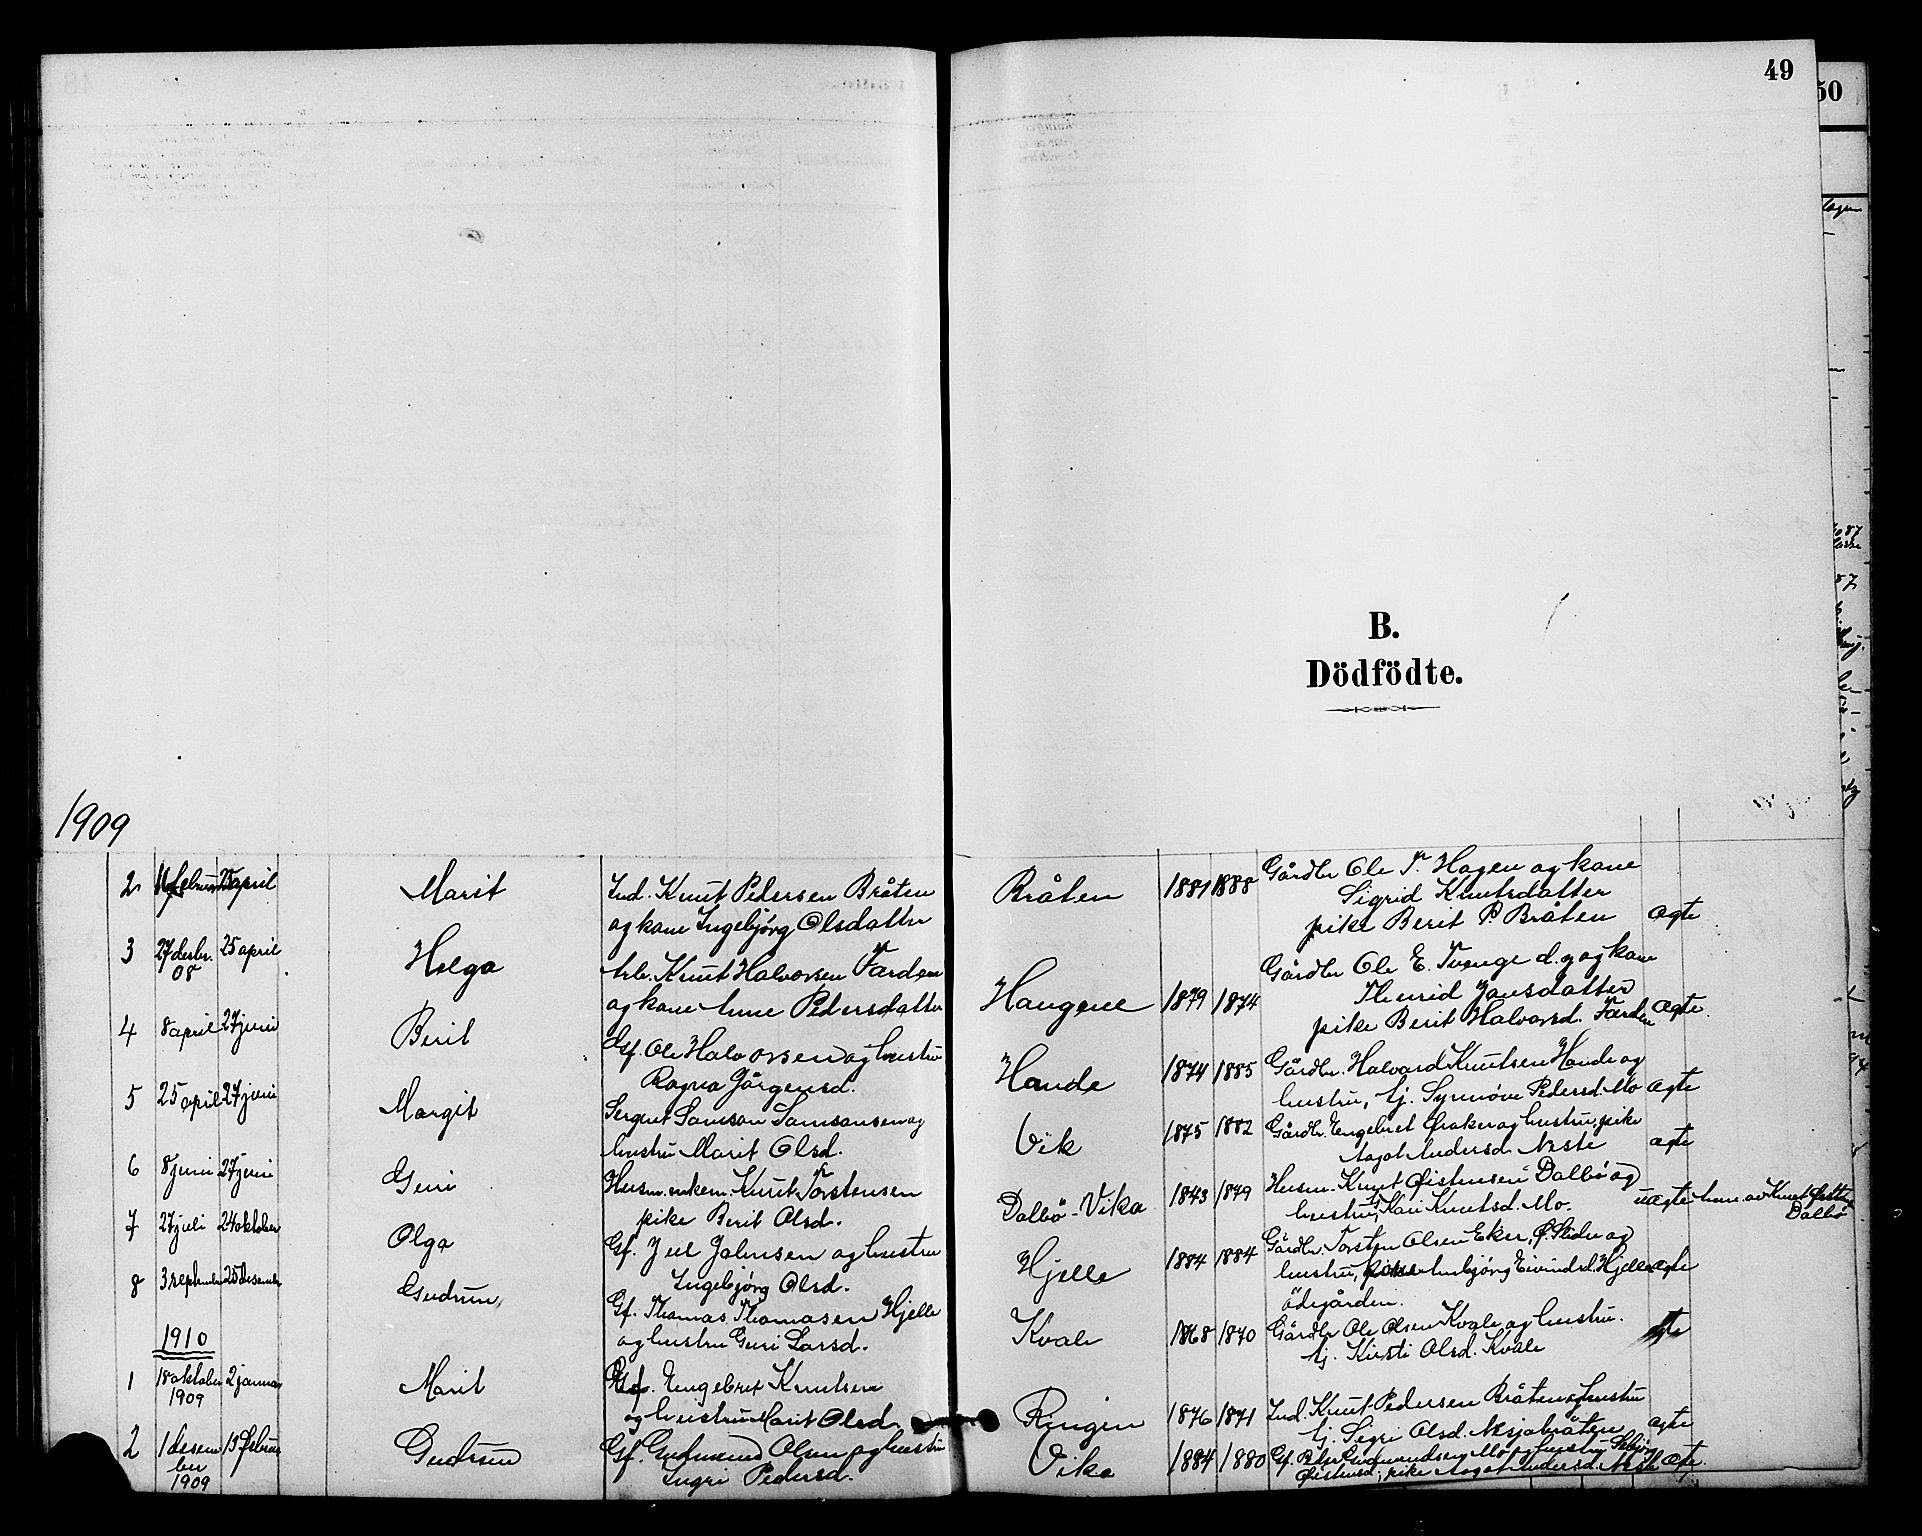 49
50
B.
Dödfödte.
1909
2 februar april Marit Ind. Knut Pedersen Bråten Bråten 1881 1888 Gårdbr Ole T. Hagen og kone
og kone Ingebjørg Olsdatter Sigrid Knutsdatter
pike Berit P. Bråten ægte
3 27 desbr. 25 april Helga Arb. Knut Halvorsen Færden Haugene 1879 1874 Gårdbr Ole E. Tvenge d.y og kone
08 og kone Anne Pedersdatter Thurid Jonsdatter
pike Berit Halvorsd. Færden ægte.
4 8 april 27 juni Berit Gf. Ole Halvorsen og hustru Hande 1874 1885 Gårdbr. Halvard Knutsen Hande og
Ragna Jörgensd. hustru, tj. Synnöve Pedersd. Mo ægte
5 25 april 27 juni Margit Sergent Samson Samsonsen og Vik 1875 1882 Gårdbr. Engebret og hustru, pike
hustru Marit Olsd. Aagot Andersd. Neste ægte
6 8 juni 27 juni Guri Husm. enkem. Knut Torstensen Dalbö-Vika 1843 1879 Husm. Knut Øistensen Dalbö og
pike Berit Olsd. hustru, Kari Knutsd. Mo. uægte av Knut
Dalbö
7 27 juli 24 oktober Olga Gf. Juul Johnsen og hustru Hjelle 1884 1884 Gårdbr. Torsten Olsen Eker, Ø. Slidre og
Ingebjørg Olsd. hustru, Anbjörg Eivindsd. Hjelle ægte
ödegården.
8 3 september 25 desember Gudrun Gf. Thomas Thomasen Hjelle Kvale 1868 1870 Gårdbr Ole Olsen Kvale og hustru.
og hustru Guri Larsd. tj. Kirsti Olsd. Kvale ægte
1910
1 18 oktober 2 januar Marit Gf. Engebret Knutsen Ringen 1876 1871 Ind. Knut Pedersen Bråten og hustru
1909 og hustru Marit Olsd. tj. Sigri Olsd. ægte
2 1 desem 13 februar Gudrun Gf. Gudmund Olsen og hustru Vika 1884 1880 Gf. Gudmundsen Mo og hustru
ber Ingri Pedersd. Øistensd, pike Aagot Andersd. Neste ægte
1909